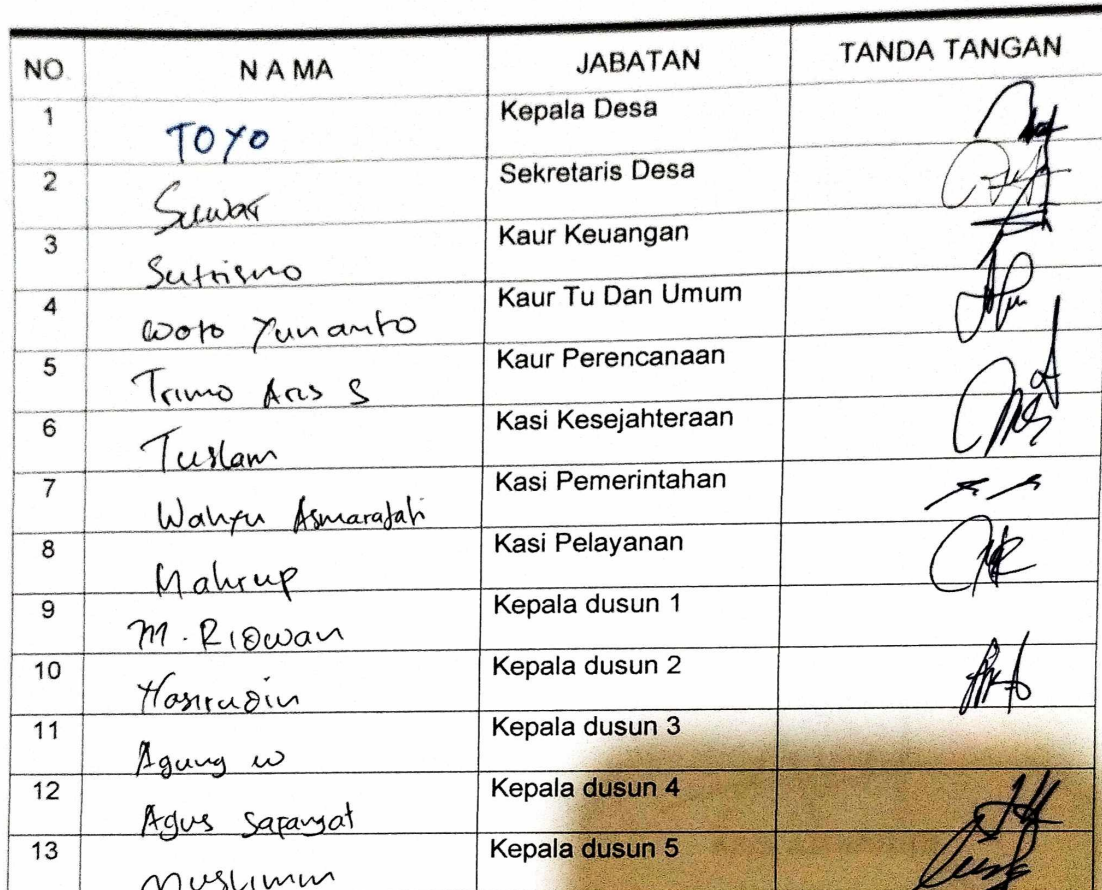 NO. NAMA JABATAN TANDA TANGAN
1 TOYO Kepala Desa
2 Suwar Sekretaris Desa
3 Sutrisno Kaur Keuangan
4 Woto Yunanto Kaur Tu Dan Umum
5 Trimo Aris S Kaur Perencanaan
6 Tuslam Kasi Kesejahteraan
7 Wahyu Asmarajati Kasi Pemerintahan
8 Mahrup Kasi Pelayanan
9 M. Ridwan Kepala dusun 1
10 Hasirudin Kepala dusun 2
11 Agung W Kepala dusun 3
12 Agus Kepala dusun 4
13 Muslimin Kepala dusun 5